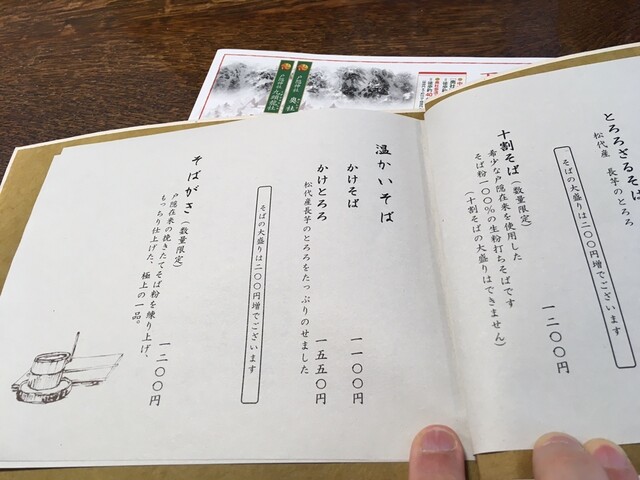 とろろざるそば
松代産 長芋のとろろ
そばの大盛りは二〇〇円増でございます
十割そば（数量限定）
希少な戸隠在来を使用した
そば粉一〇〇%の生粉打ちそばです
（十割そばの大盛りはできません）
一二〇〇円
温かいそば
かけそば
一一〇〇円
かけとろろ
松代産長芋のとろろをたっぷりのせました
一五五〇円
そばの大盛りは二〇〇円増でございます
そばがき（数量限定）
戸隠在来の挽きたてそば粉を練り上げ、
もっちり仕上げた、極上の一品。
一二〇〇円
戸隠神社 奥社
戸隠神社 九頭龍社